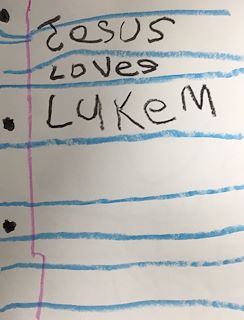 Jesus
Loves
LUKeM